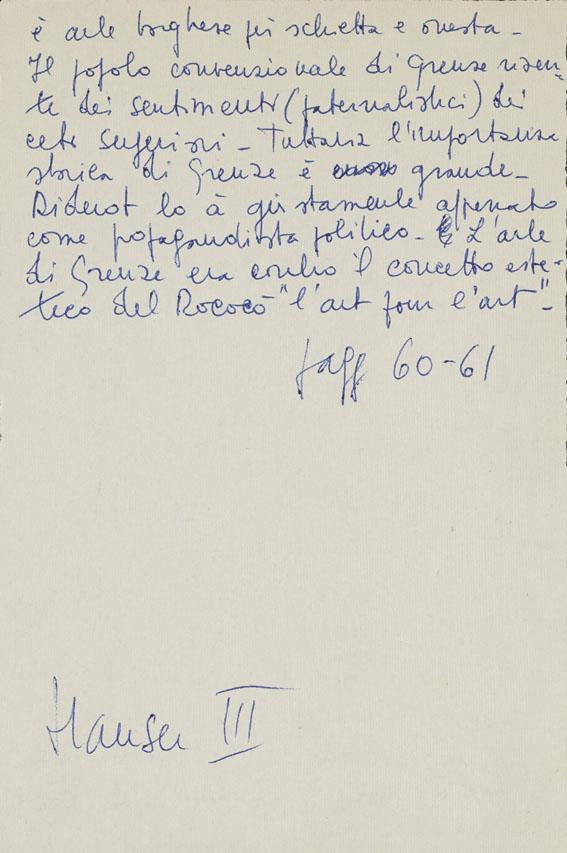 è arte borghese più schietta e onesta -
Il popolo convenzionale di Greuze risen-
te dei sentimenti (paternalistici) dei
ceti superiori - Tuttavia l'importanza
storica di Greuze è grande -
Diderot lo à giustamente apprezzato
come propagandista politico - L'arte
di Greuze era contro il concetto este-
tico del Rococò - "l'art pour l'art" -
pagg 60-61
Hauser III